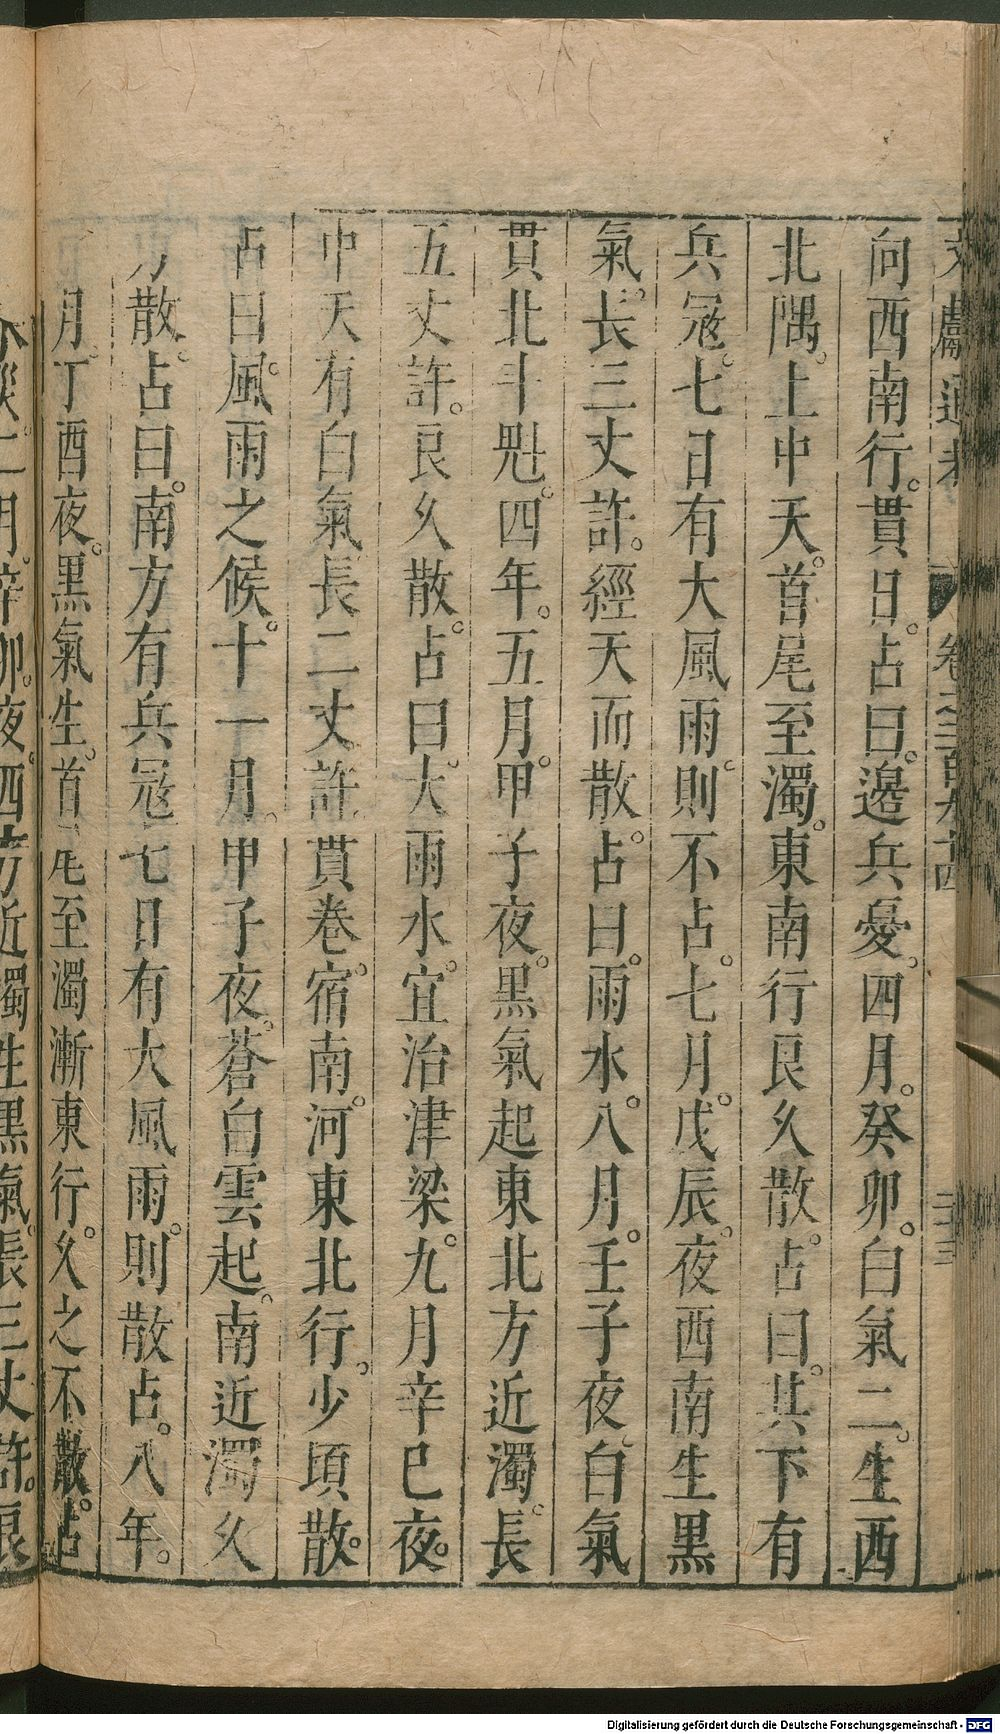 文獻通考 卷之二百九十四 二十三
向西南行。貫日。占曰。邊兵憂。四月。癸卯。白氣二。生西
北隅。上中天。首尾至濁。東南行良久散。占曰。其下有
兵冦。七日有大風雨。則不占。七月。戊辰。夜西南生黑
氣。長三丈許。經天而散。占曰。雨水。八月。壬子夜。白氣
貫北斗魁。四年。五月。甲子夜。黑氣起東北方近濁。長
五丈許。良久散。占曰。大雨水。宜治津梁。九月辛巳夜。
中天有白氣長二丈許。貫卷。宿南。河東北行。少頃散。
占曰。風雨之候。十一月。甲子夜。蒼白雲起。南近濁久
方散。占曰。南方有兵冦七日有大風雨。則散占。八年。
月。丁酉夜。黑氣生。首尾至濁漸東行。久之不散。占。
二月。辛卯。夜。西方近濁生黑氣。長三丈許。良
Digitalisierung gefördert durch die Deutsche Forschungsgemeinschaft - DFG